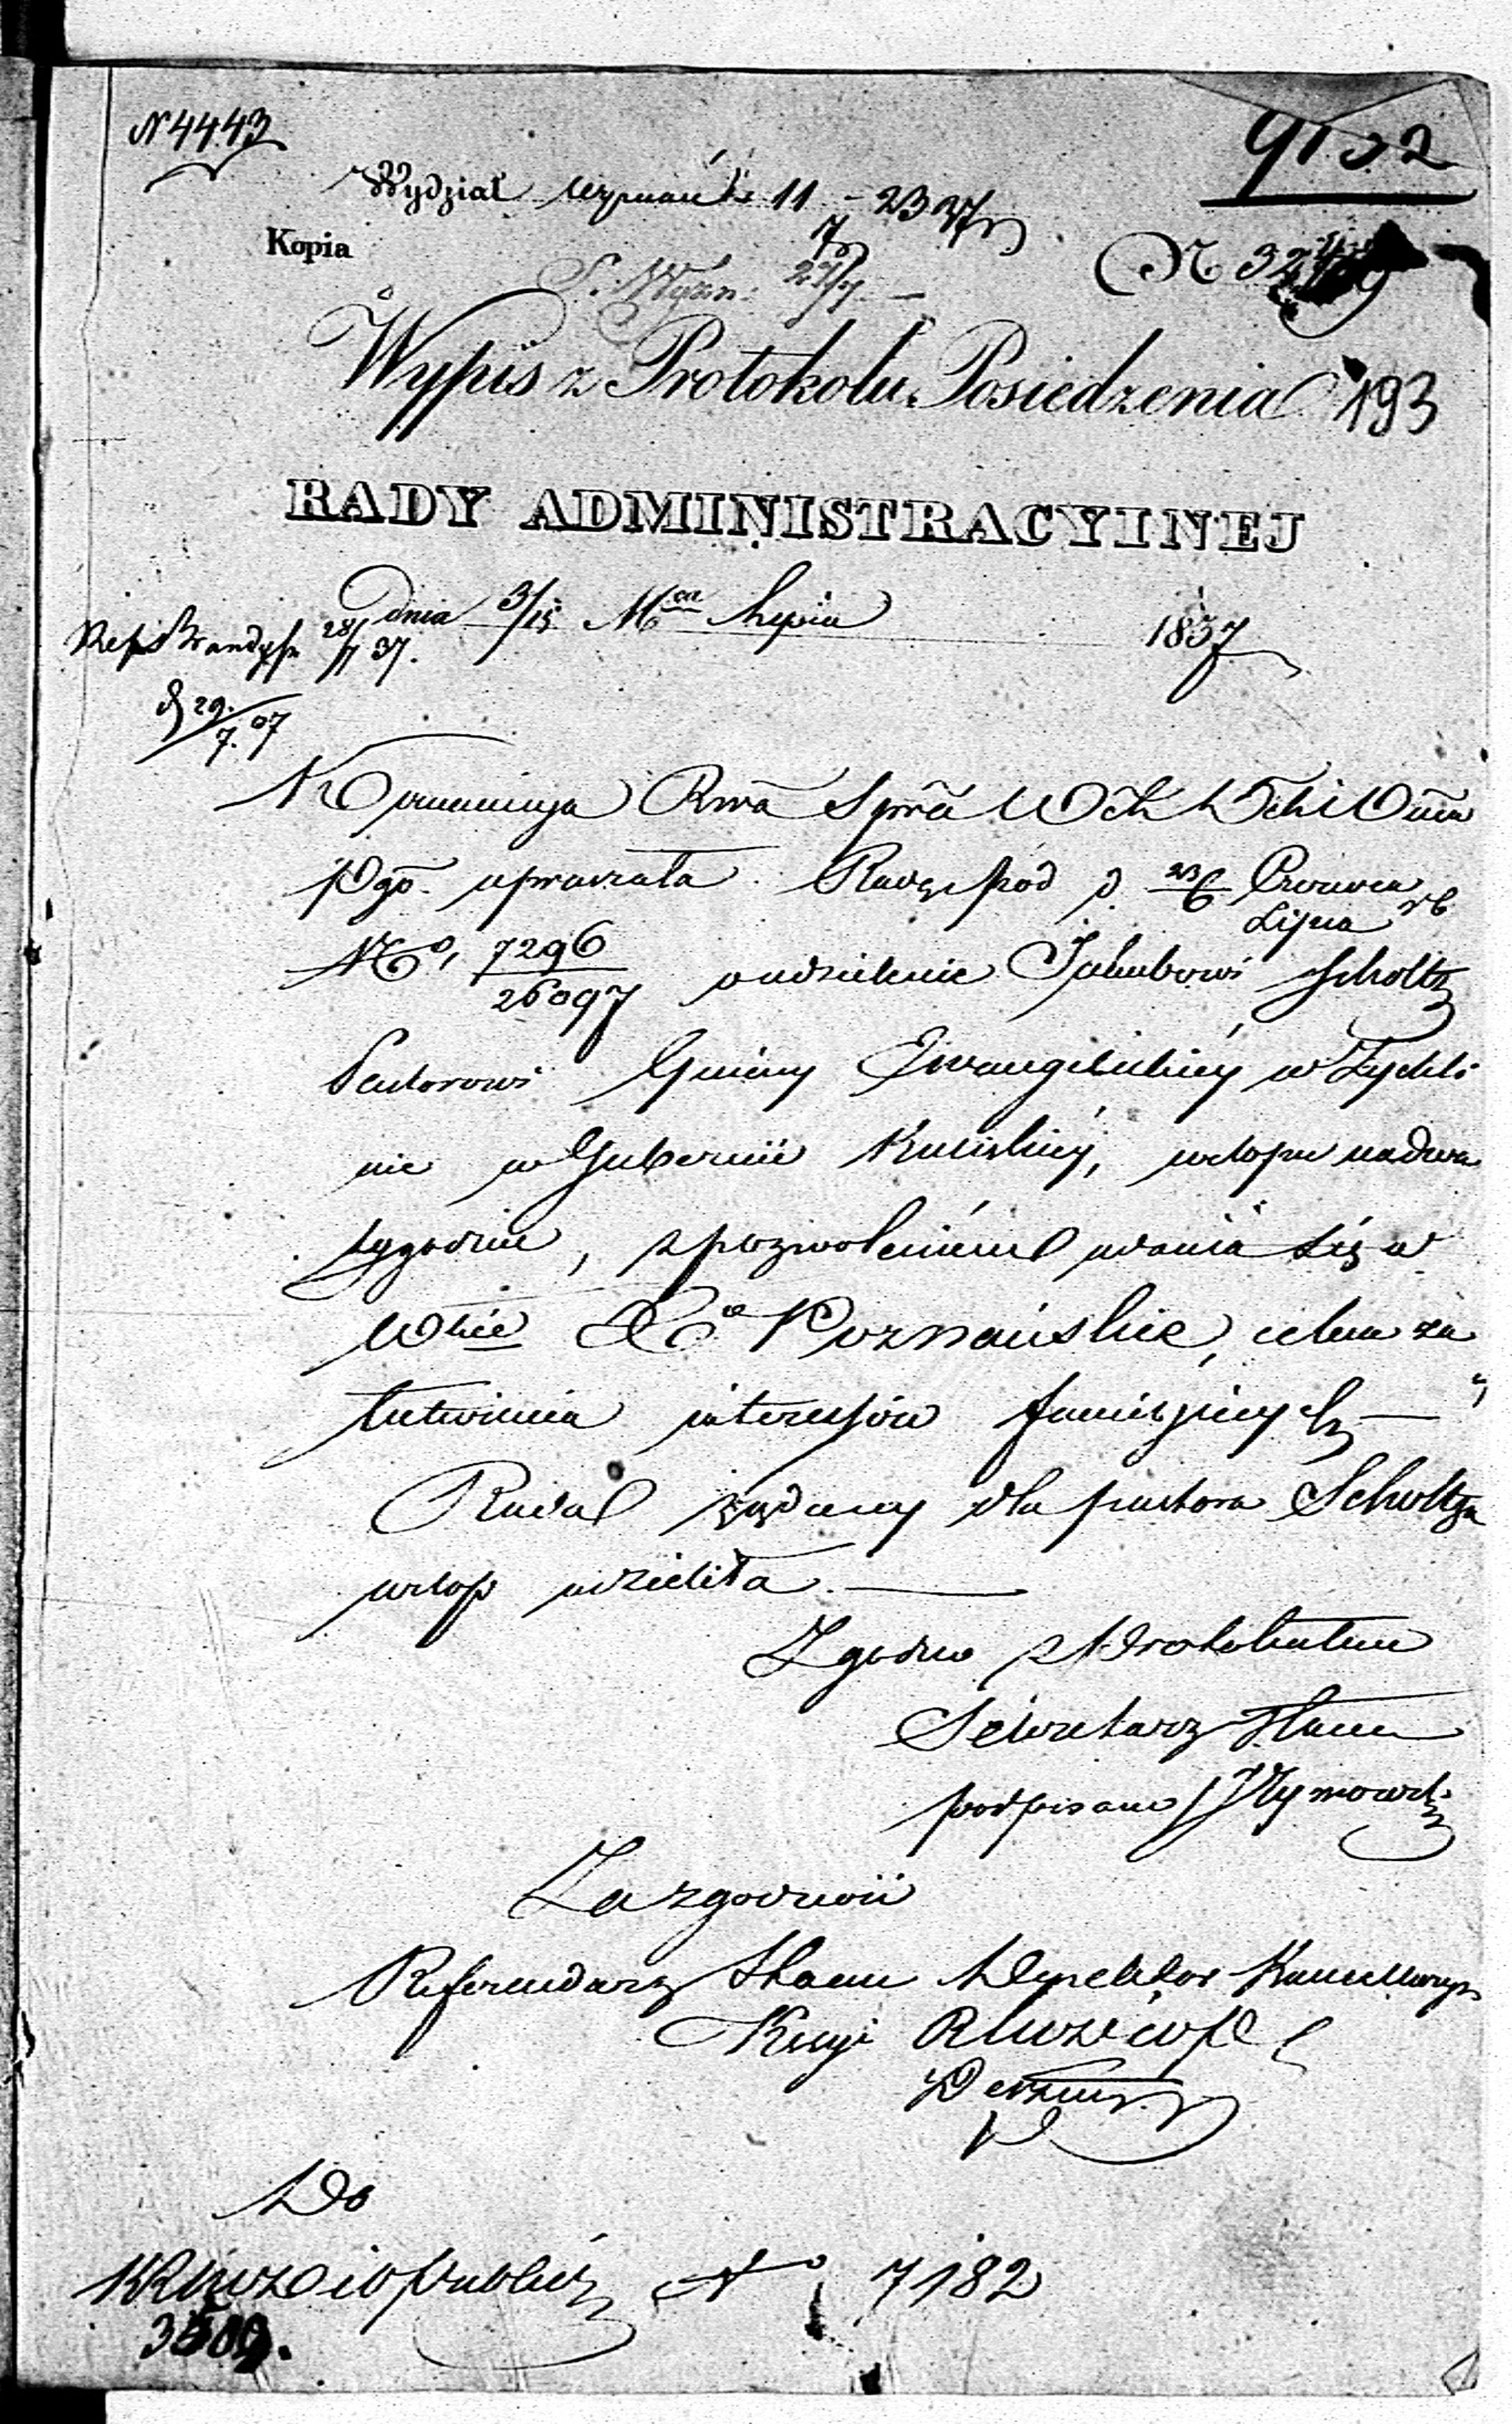 N 4443
9132
Wydział Wyznań 11 - 23 37
Kopia
N 324
S. Wyzn: 27/7 —
Wypis z Protokołu Posiedzenia
193
RADY ADMINISTRACYINEJ
dnia 3/15 Mca Lipca 1837
28/7 37.
29./7. 37
Kommissya Rwa Spraw Wch Dch i Ośnia
Pgo. upraszała Radę pod d. 23/6 Czerwca/Lipca rb
No, 7296/26097 o udzielenie Jakubowi Scholtz
Pastorowi Gminy Ewangelickiéy w Zychli
nie w Gubernii Kaliskiéy, urlopu na dwa
tygodnie, z pozwoleniem udania się w
Wkie Xo Poznańskie, celem za
łatwienia interessów familijnych —
Rada żądany dla pastora Scholtza
urlop udzieliła. —
Zgodno z Protokułem
Sekretarz Stanu
podpisano / Tymowski
Za zgodność
Referendarz Stanu Dyrektor Kancellaryi
Kssyi RSWD i OP
Do
KRSWD i OPubliczn No 7182